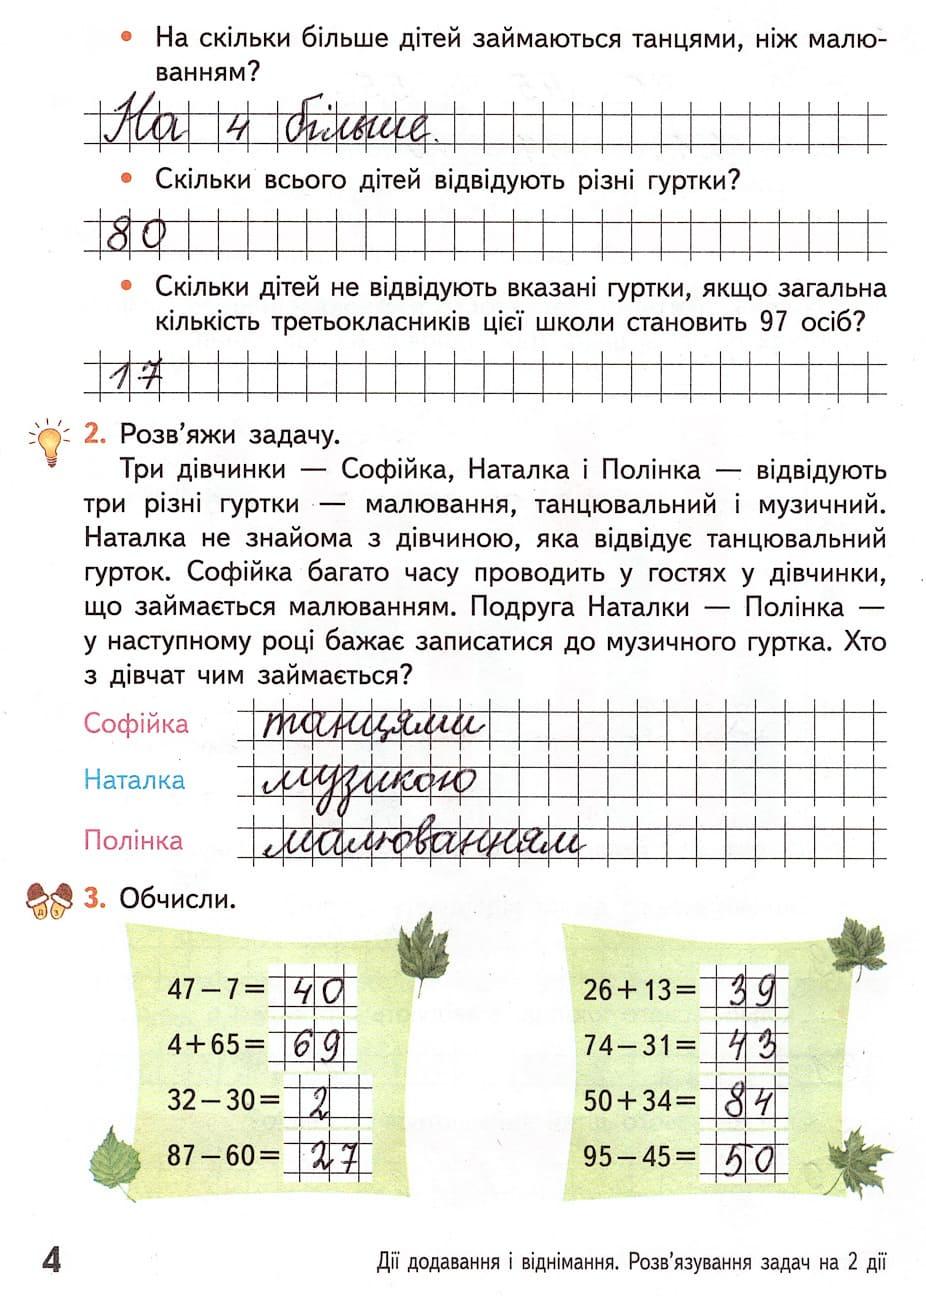 • На скільки більше дітей займаються танцями, ніж малю-
ванням?
На 4 більше.
• Скільки всього дітей відвідують різні гуртки?
80
• Скільки дітей не відвідують вказані гуртки, якщо загальна
кількість третьокласників цієї школи становить 97 осіб?
17
2. Розв’яжи задачу.
Три дівчинки — Софійка, Наталка і Полінка — відвідують
три різні гуртки — малювання, танцювальний і музичний.
Наталка не знайома з дівчиною, яка відвідує танцювальний
гурток. Софійка багато часу проводить у гостях у дівчинки,
що займається малюванням. Подруга Наталки — Полінка —
у наступному році бажає записатися до музичного гуртка. Хто
з дівчат чим займається?
Софійка танцями
Наталка музикою
Полінка малюванням
Д З 3. Обчисли.
47 – 7 = 40
4 + 65 = 69
32 – 30 = 2
87 – 60 = 27
26 + 13 = 39
74 – 31 = 43
50 + 34 = 84
95 – 45 = 50
4 Дії додавання і віднімання. Розв’язування задач на 2 дії